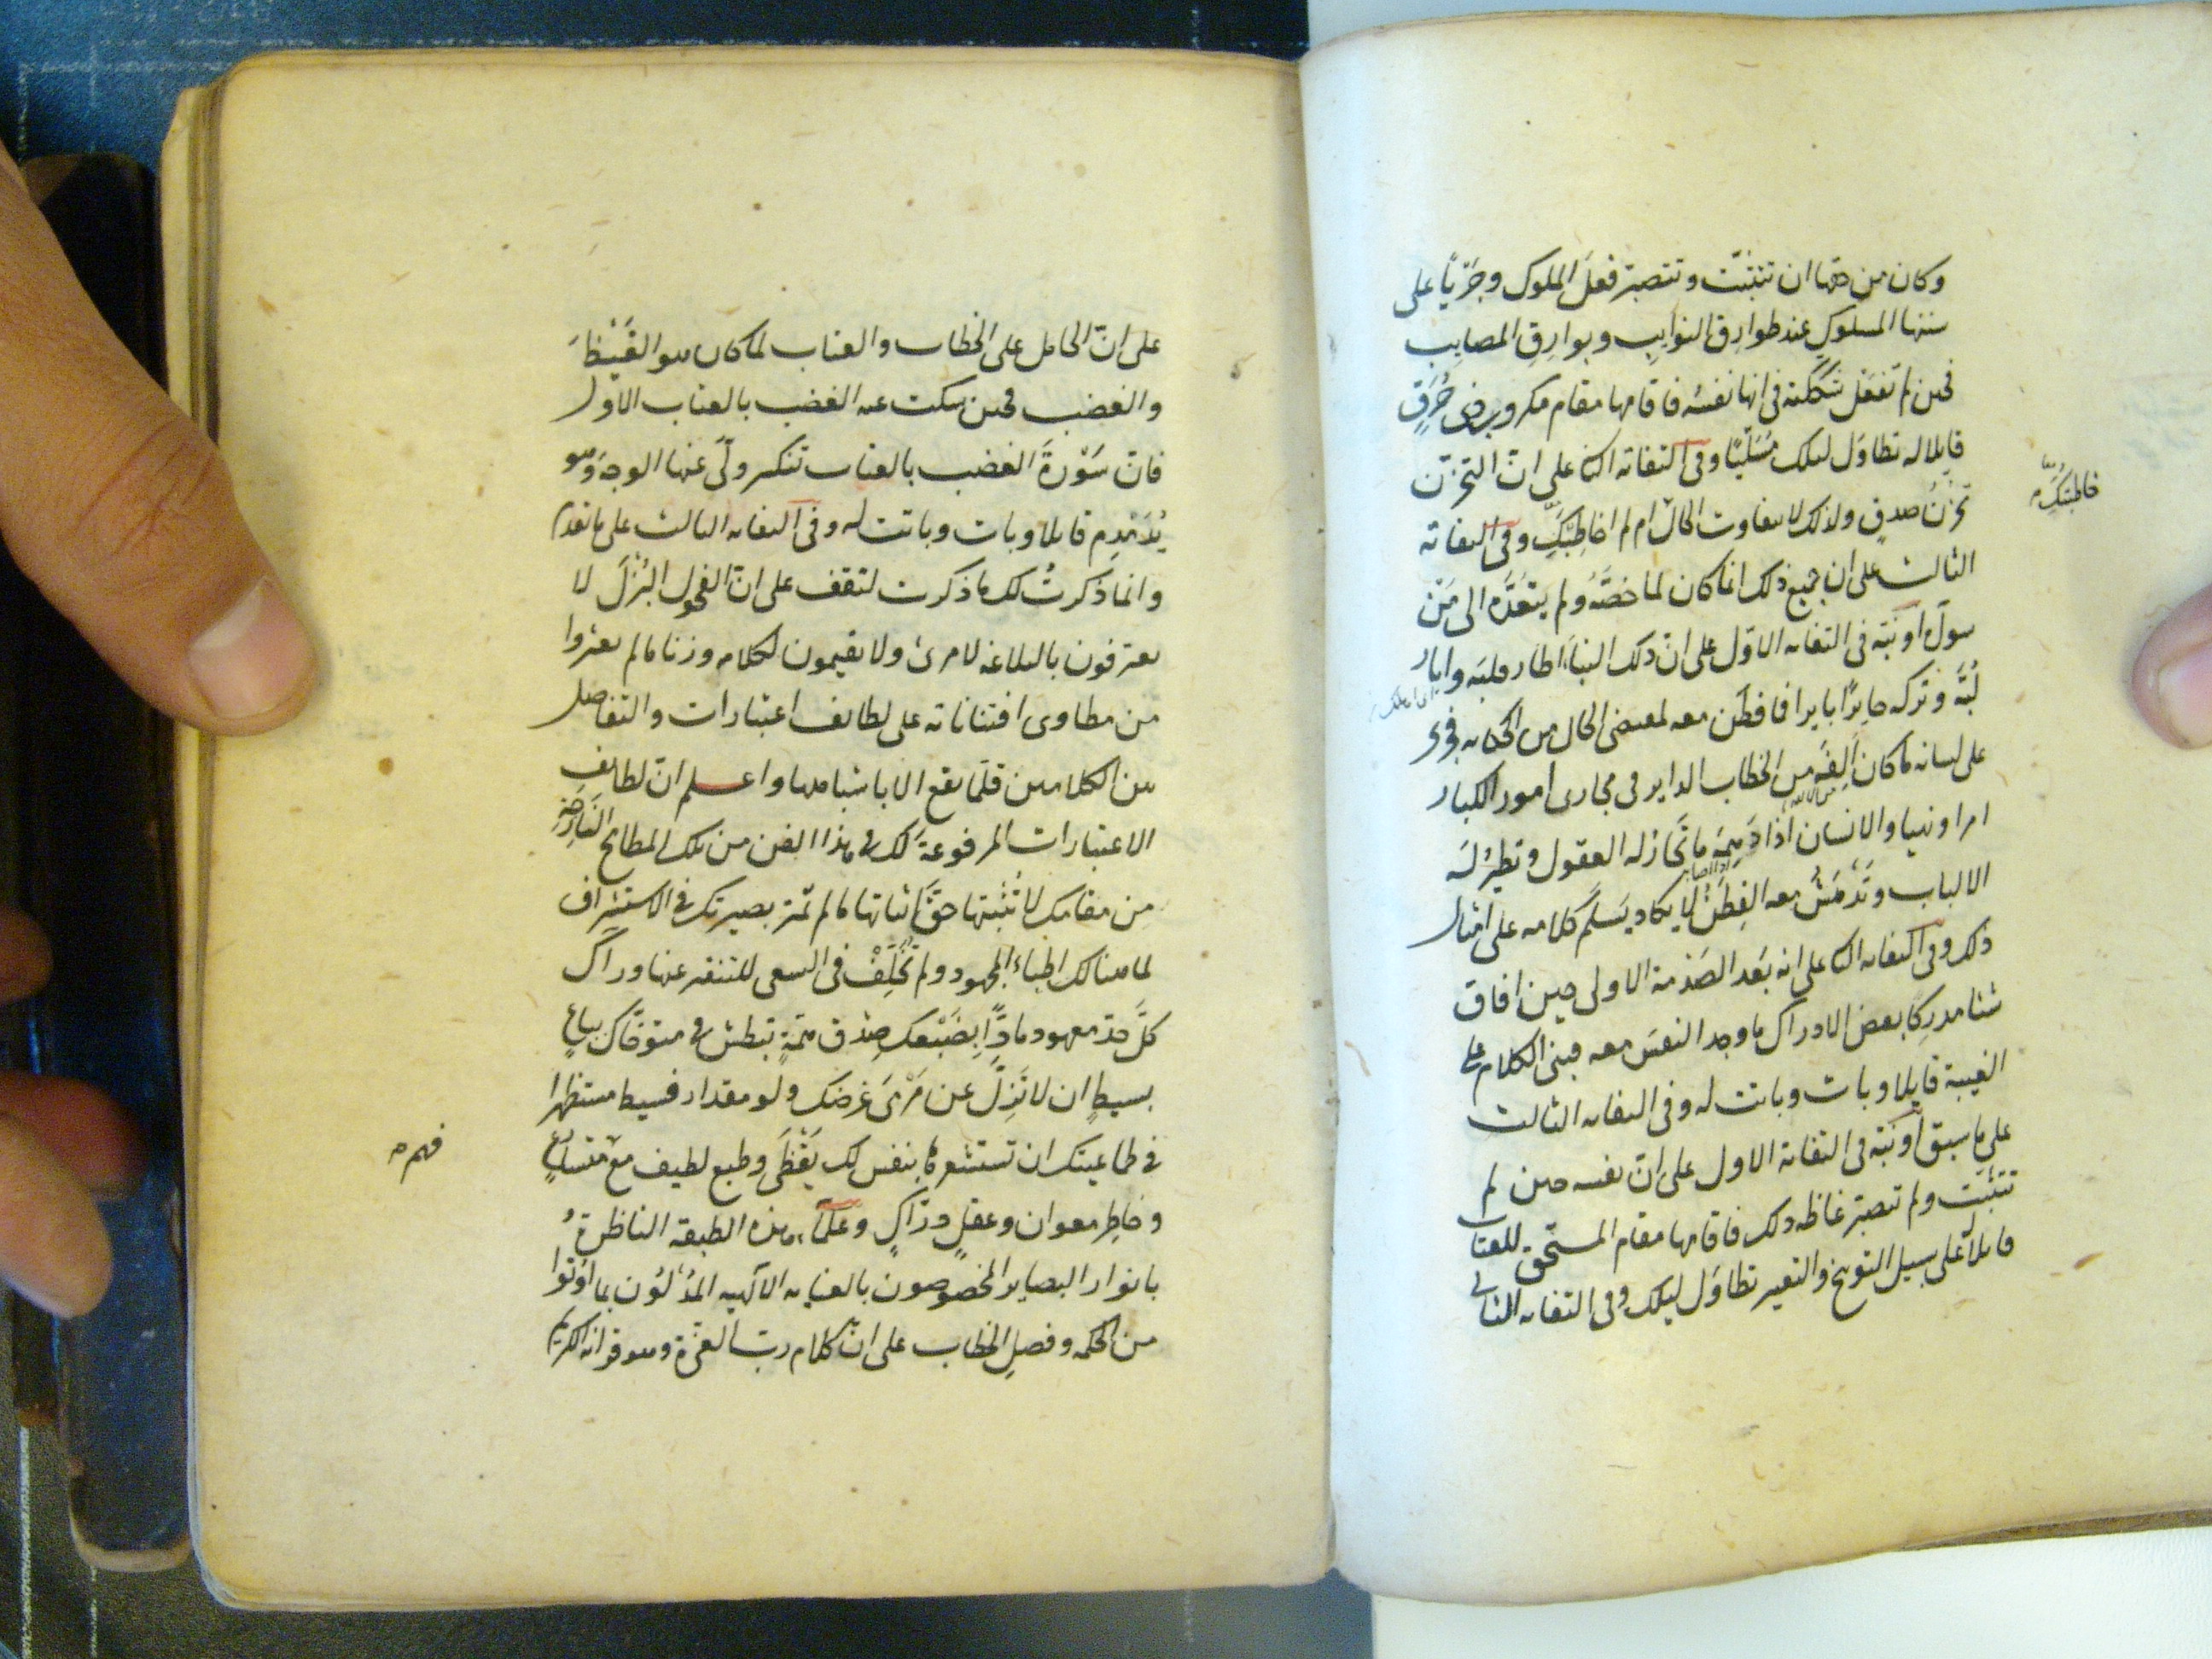 وكان من حقها ان تتثبت وتتصبر فعل الملوك وجريًا على
سننها المسلوك عند طوارق النوايب وبوارق المصايب
فحين لم تفعل شككته فى انها نفسه فاقامها مقام مكروب ذى حُرَقٍ
قايلا له تطاول ليلك مُسَلِّيًا وفى التفاته الثانى على ان التحزن
تحزّنُ صدقٍ ولذلك لا يتفاوت الحال ام لم اخاطبكِ وفى التفاته
خاطبتك
الثالث على ان جميع ذلك انما كان لما خصَّهُ ولم يتعدَّه الى مَنْ
سواه او نَبّه فى التفاته الاوّل على انّ ذلك النبأ اطار قلبه وابار
لُبَّهُ وتركه حايرًا بايرا فما فطن معه لمقتضى الحال من الحكاية فجرى
على لسانه ما كان اَلِفَه من الخطاب الداير فى مجارى امور الكبار
امرا ونهيا والانسان اذا دَهِمَه ما تَحَار له العقول وتطير له
الالباب وتَدْهَشُ معه الفِطَنُ لا يكاد يَسْلَم كلامه على امثال
ذلك وفى التفاته الثانى على انه بَعد الصَدْمة الاولى حين افاق
شئا مدركا بعض الادراك ما وجد النفسَ معه فبنى الكلام على
الغيبة قايلا وبات وباتت له وفى التفاته الثالث
على ما سبق او نَبّه فى التفاته الاول على انّ نفسه حين لم
تتثبّت ولم تتصبّر غاظه ذلك فاقامها مقام المستحق للعتاب
قايلا على سبيل التوبيخ والتعيير تطاوَل ليلك وفى التفاته الثانى
على انّ الحامل على الخطاب والعتاب لما كان هو الغَيْظَ
والغضب فحين سكت عنه الغضب بالعتاب الاول
فانّ سَوْرةَ الغضب بالعتاب تنكسر ولّى عنها الوجهَ وهو
يُدَمْدِم قايلا وبات وباتت له وفى التفاته الثالث على ما تقدم
وانما ذكرتُ لك ما ذكرت لتقف على انّ الفحول البُزْلَ لا
يعترفون بالبلاغة لامرئ ولا يقيمون لكلامه وزنا ما لم يعثروا
من مطاوى افتناناته على لطايف اعتبارات والتفاضل
بين الكلامين قلّما يقع الا باشباهها واعلم انّ لطايف
الاعتبارات المرفوعةَ لك فى هذا الفن من تلك المطامح النازحةِ
من مقامك لا تُثْبِتها حقَّ اثباتها ما لم تمتر بصيرتك فى الاستشراف
لما هنالك اطباء المجهود ولم تُخْلِفْ فى السعى للتنقير عنها وراك
كلّ حدّ معهود مادًّا بِضَبْعك صِدْق همّةٍ تبطش فى متوخّاك بباعٍ
بسيطٍ ان لا تَزِلّ عن مَرْمَى غرضك ولو مقدار فسيط مستظهرا
فى طماعيتك ان تستشعرها بنفس لك يَقْظَى وطبع لطيف مع متسارعٍ
فهم
وخاطر معوان وعقلٍ درّاكٍ وعلماء هذه الطبقة الناظرةُ
بانوار البصاير المخصوصون بالعناية الالهيه المُدْلُون بما اوتوا
من الحكمة وفصل الخطاب على انّ كلام ربّ العزّة وهو قرانه الكريم